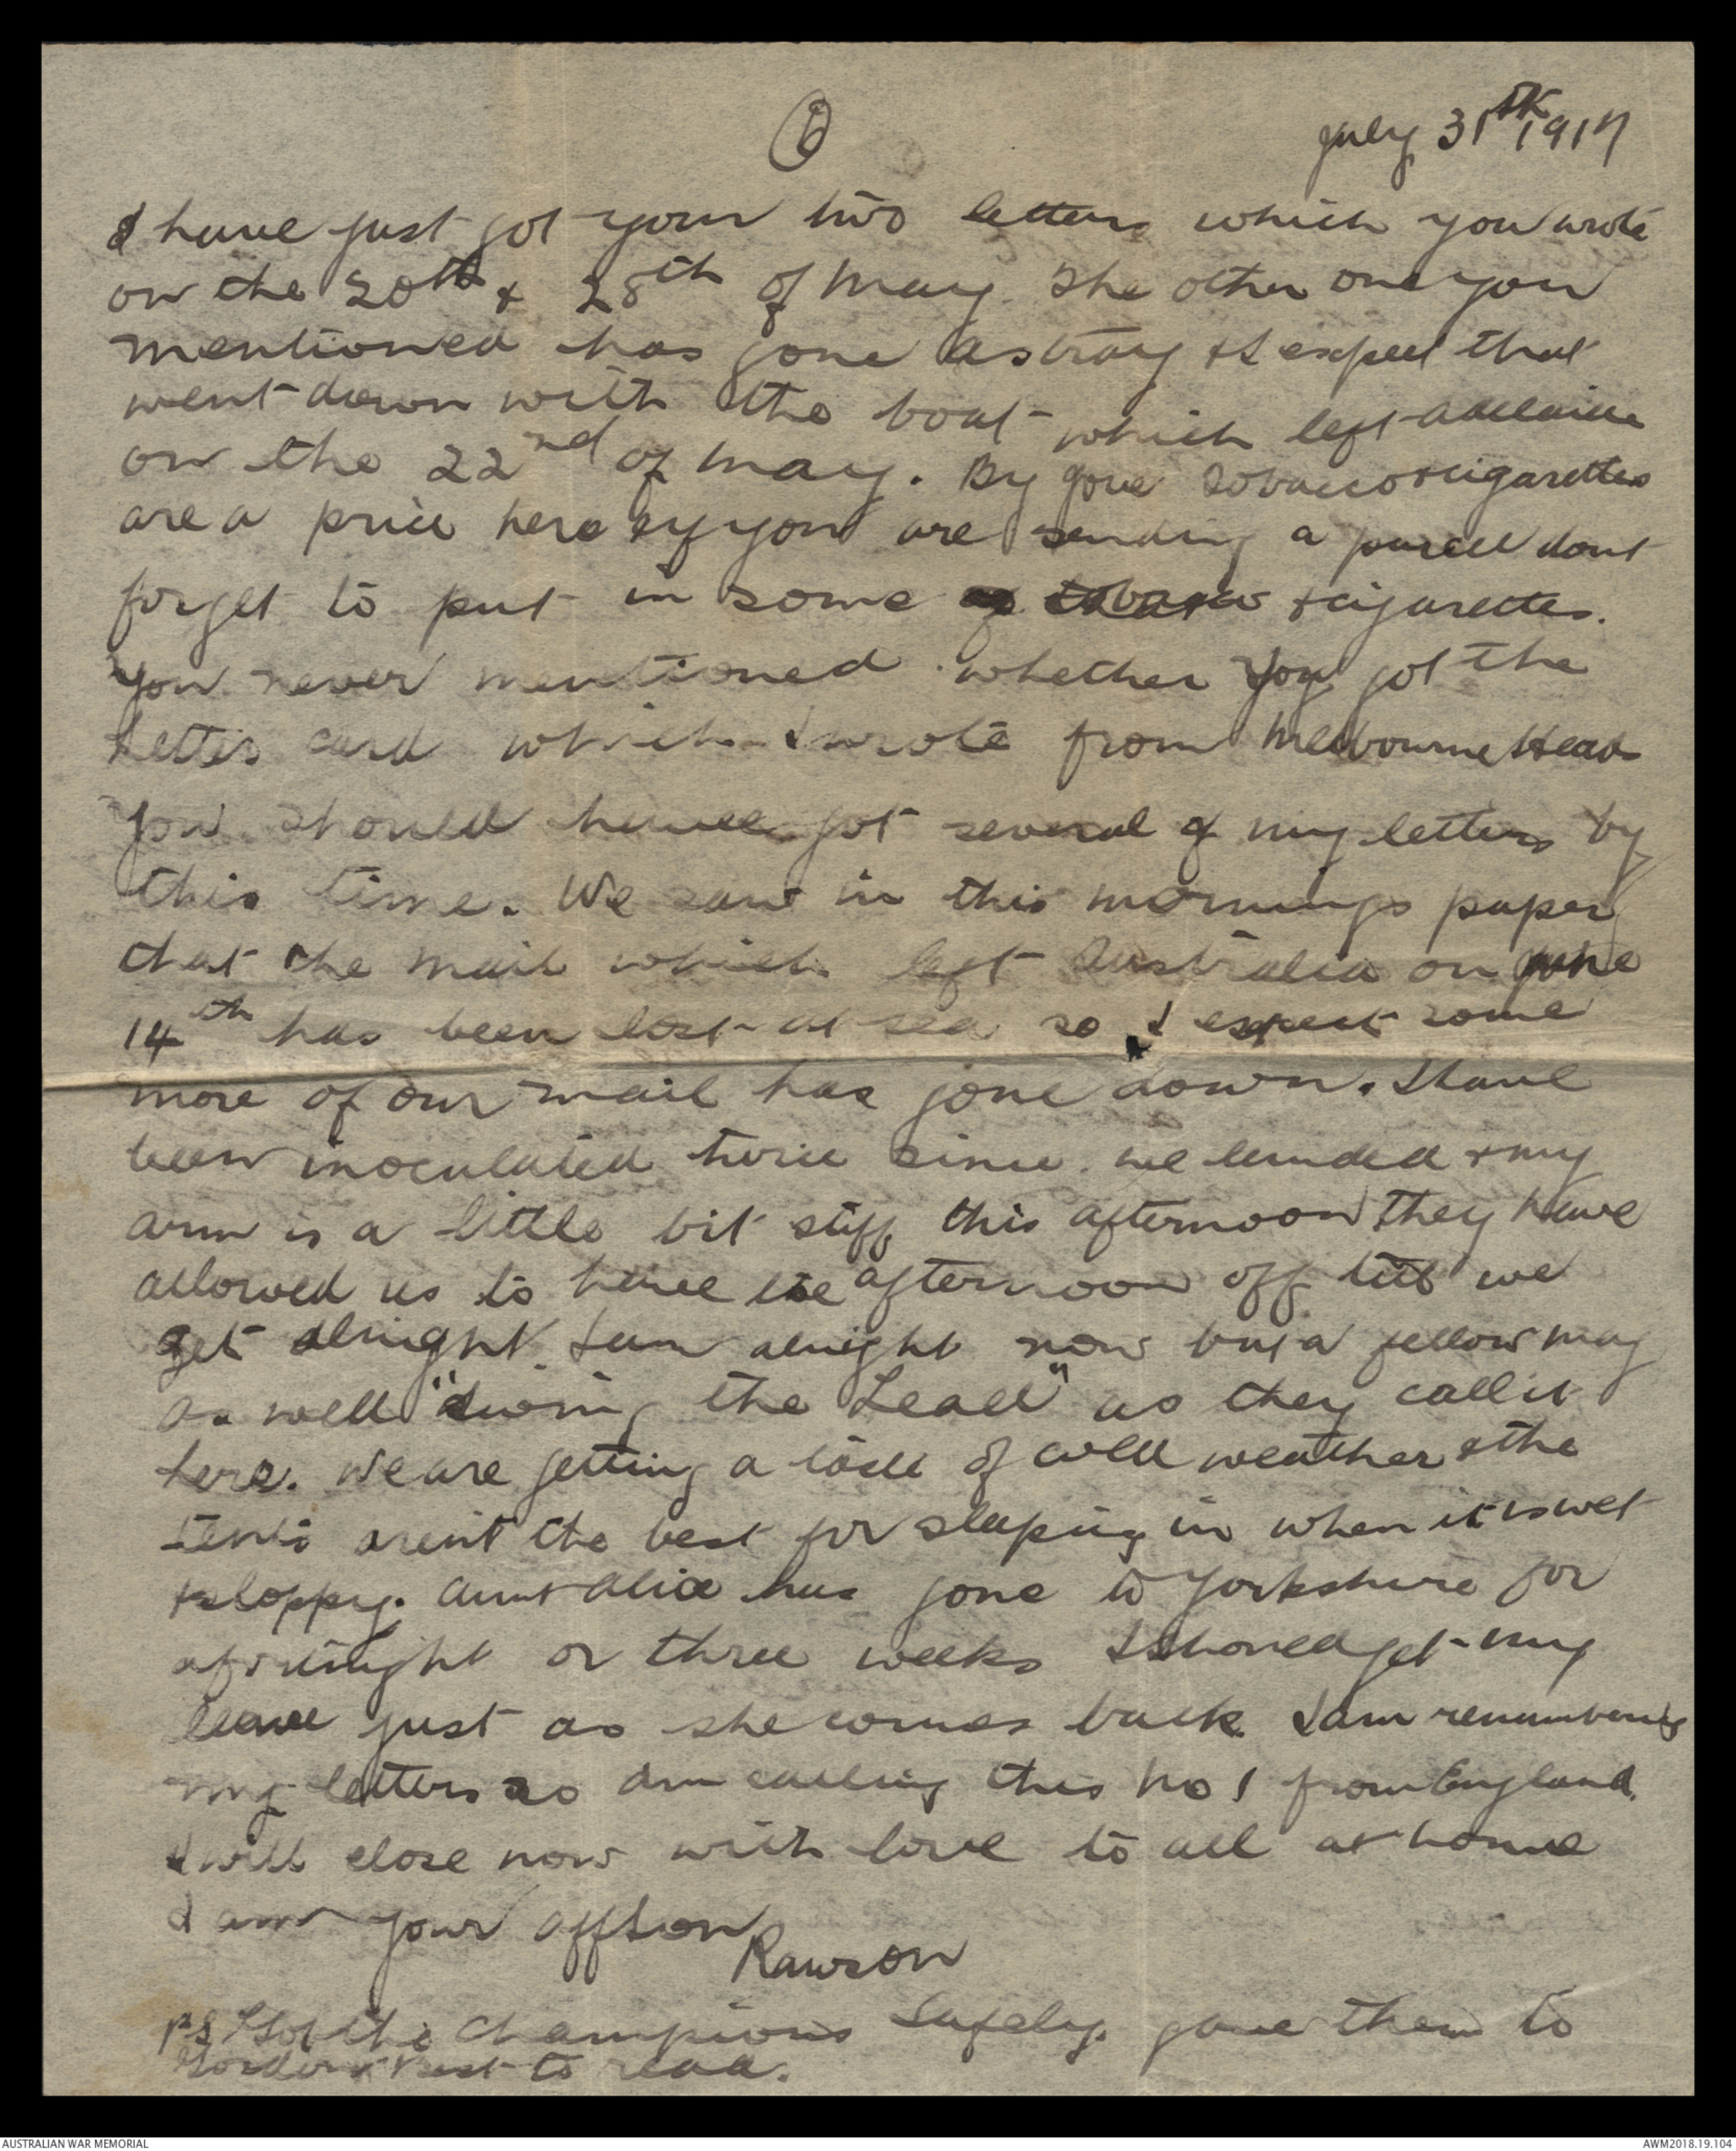 6
July 31st 1917
I have just got your two letters which you wrote
on the 20th & 28th of May. The other one you
mentioned has gone astray & I expect that
went down with the boat which left Adelaide
on the 22nd of May. By Jove tobacco & cigarettes
are a price here if you are sending a parcel dont
forget to put in some tobacco & cigarettes.
You never mentioned whether you got the
letter card which I wrote from Melbourne Heads
You should have got several of my letters by
this time. We saw in this mornings paper
that the mail which left Australia on June
14th has been lost at sea so I expect some
more of our mail has gone down. I have
been inoculated twice since we landed & my
arm is a little bit stiff this afternoon they have
allowed us to have the afternoon off till we
get alright. I am alright now but a fellow may
as well "swing the Lead" as they call it
here. We are getting a lot of cold weather & the
tents arent the best for sleeping in when it is wet
& sloppy. Aunt Alice has gone to Yorkshire for
a fortnight or three weeks I should get my
leave just as she comes back. I am renumbering
my letters so am calling this No 1 from England.
I will close now with love to all at home
I am your aff son
Rawson
PS Got the Champions safely. gave them to
Gordon & to read.
AUSTRALIAN WAR MEMORIAL
AWM2018.19.104